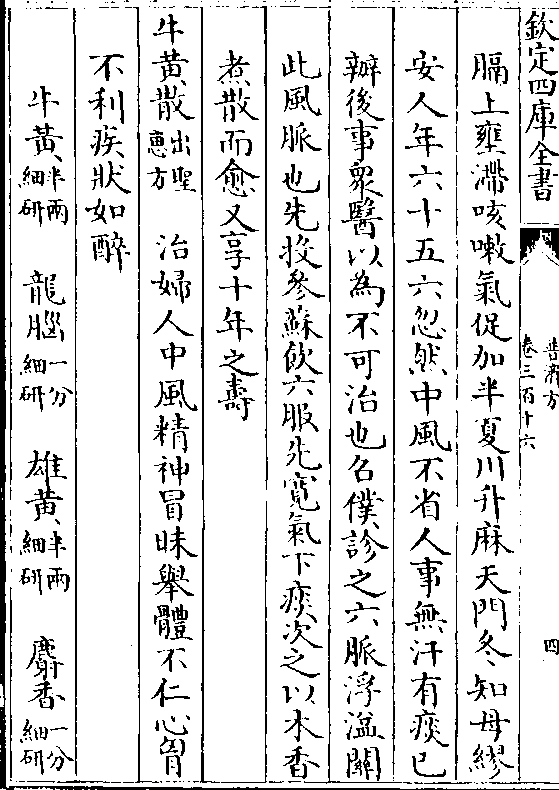 欽定四庫全書
普濟方
卷三百十六
四
膈上壅滯咳嗽氣促加半夏川升麻天門冬知母繆
安人年六十五六忽然中風不省人事無汗有痰已
辦後事衆醫以為不可治也召僕診之六脈浮溢關
此風脈也先投參蘇飲六服先寛氣下痰次之以木香
煮散而愈又享十年之壽
牛黃散出聖惠方 治婦人中風精神冒昧舉體不仁心胷
不利疾狀如醉
牛黃半兩細研 龍腦一分細研 雄黃半兩細研 麝香一分細研